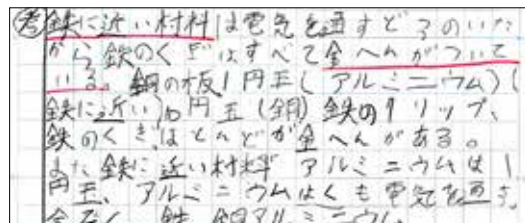 考 鉄に近い材料は電気を通すどうのいた
から鉄のくぎはすべて金へんがついて
いる。銅の板1円玉(アルミニウム)(
鉄に近い)10円玉(銅)鉄のクリップ、
鉄のくぎほとんどが金へんがある。
また鉄に近い材料 アルミニウムは1
円玉、アルミニウムはくも電気を通す。
鉄 銅アルミニウム